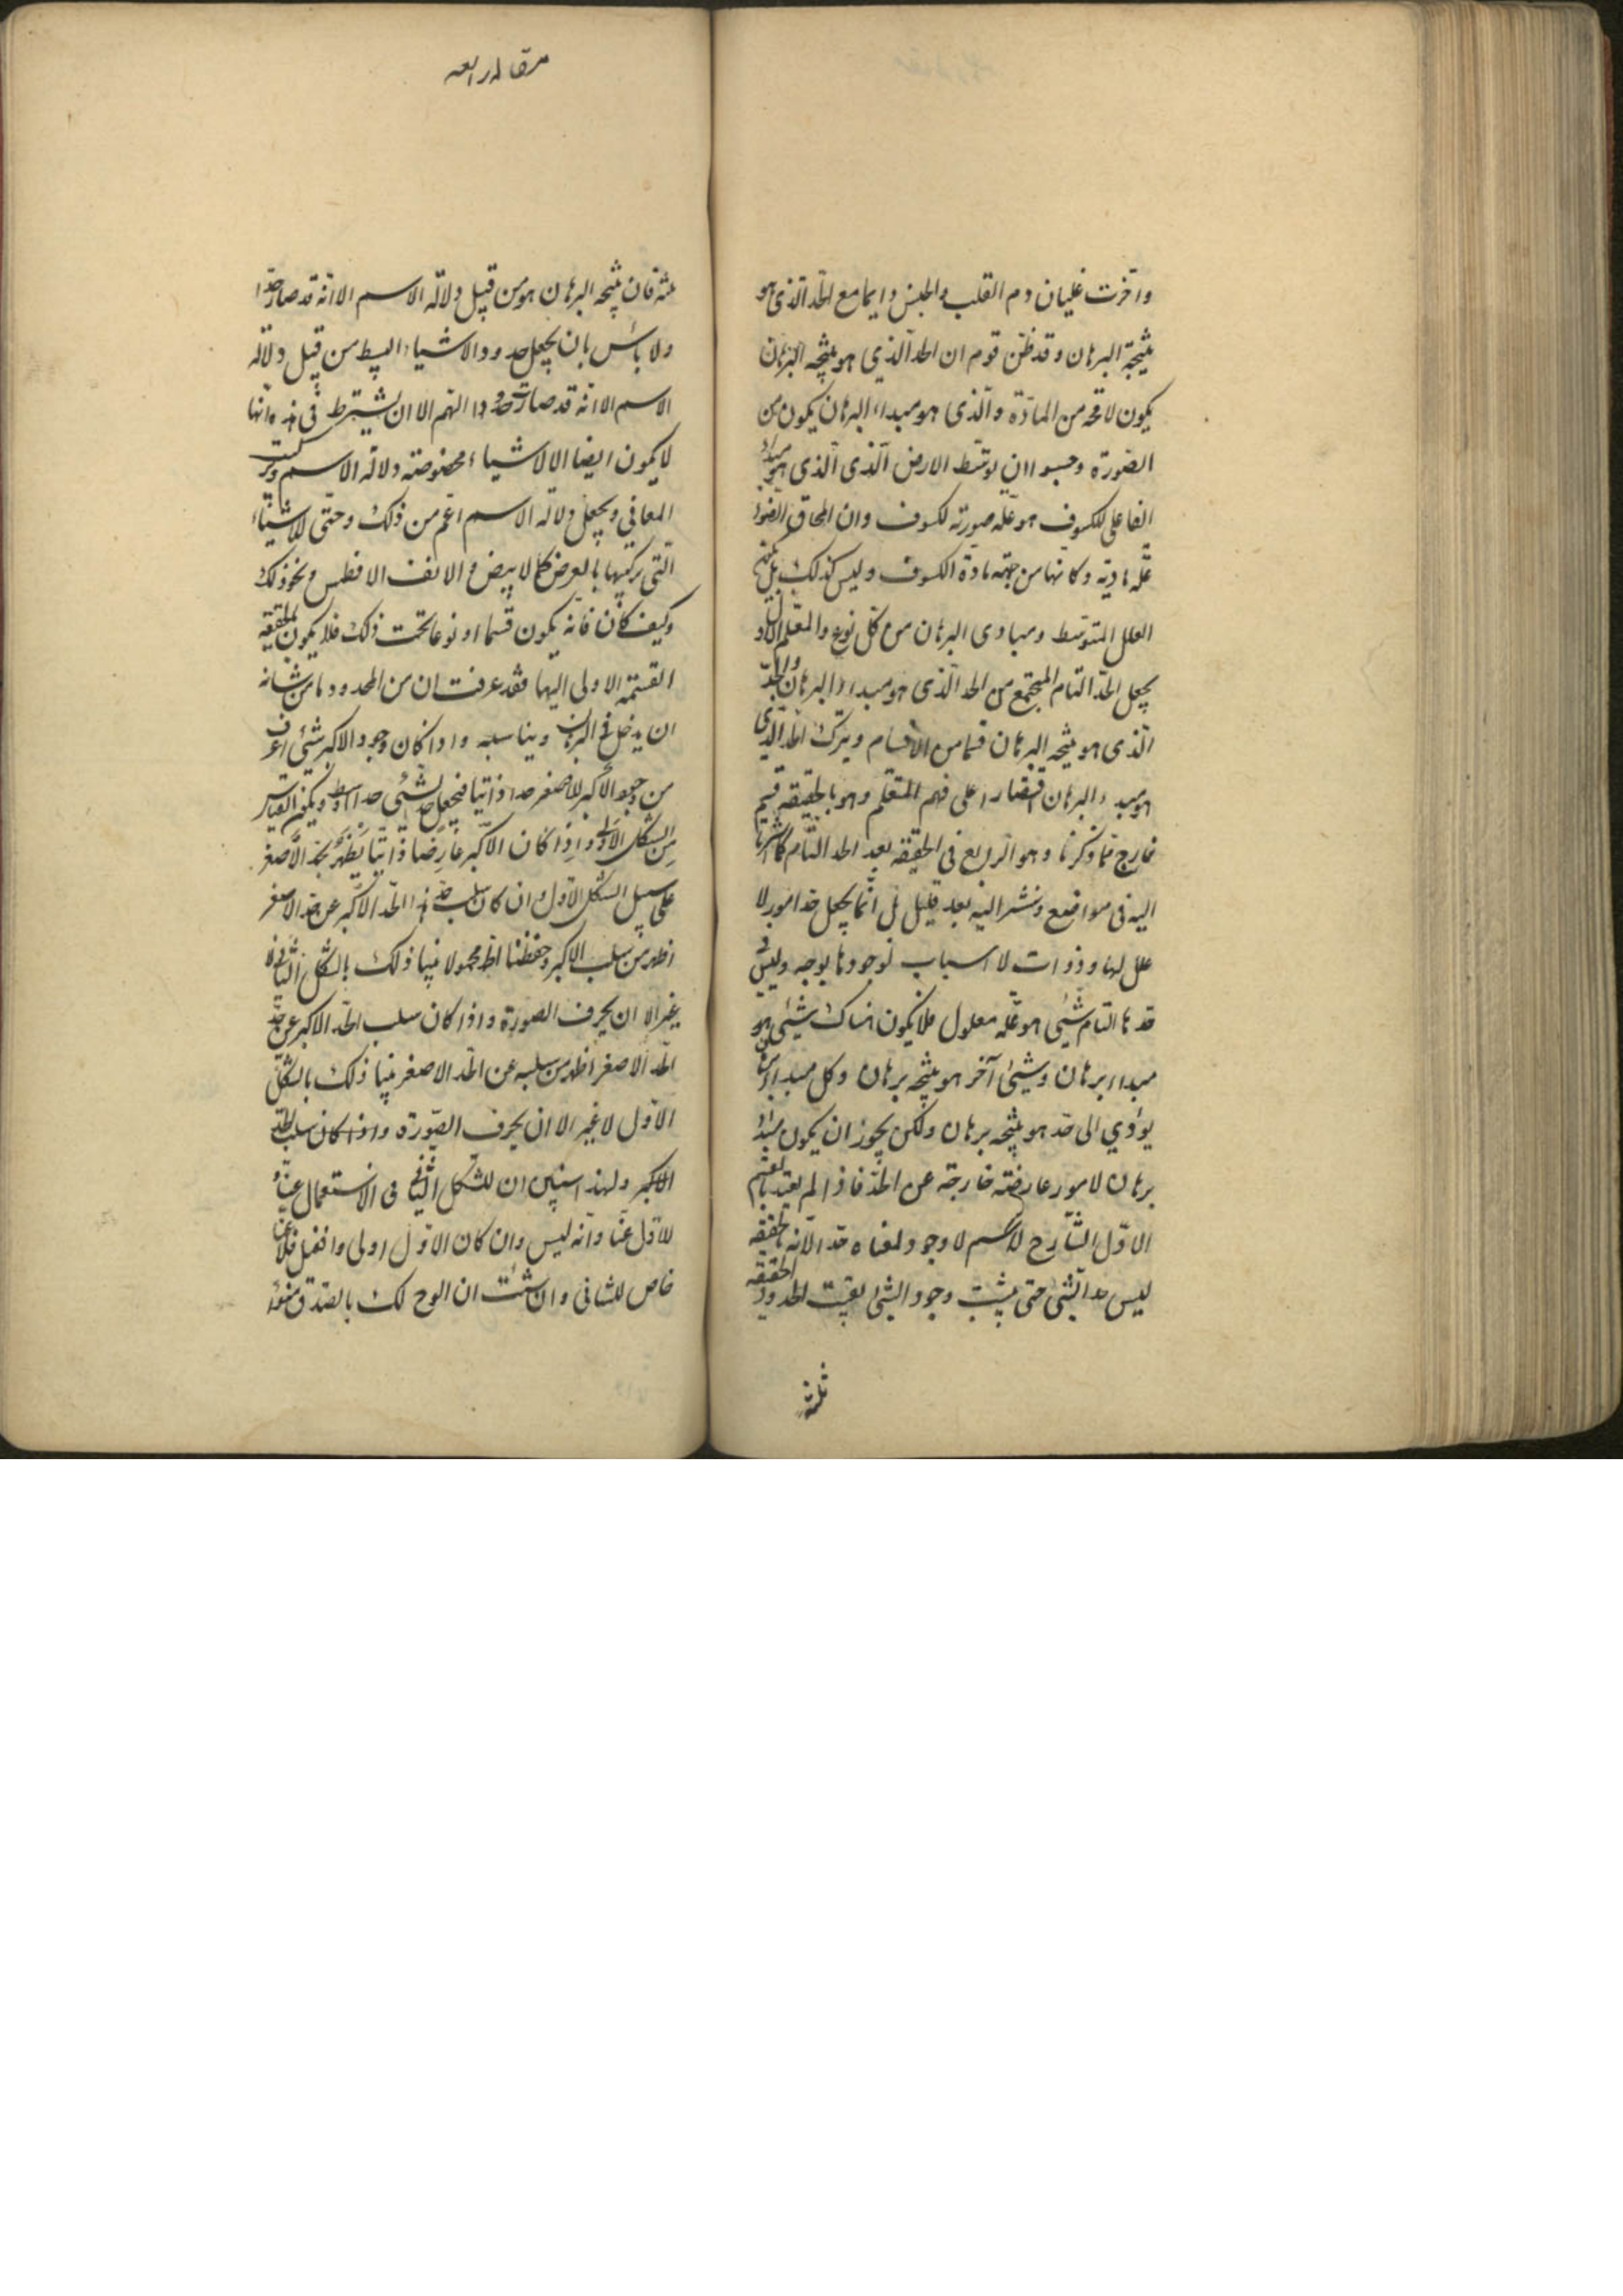 واخرت غليان دم القلب والجنس دايما مع الحد الذى هو
نتيجة البرهان وقد ظن قوم ان الحد الذي هو نتيجه البرهان
يكون لا محه من المادة والذى هو مبداء البرهان يكون من
الصورة وحسبوا ان توسط الارض الذى الذى هو مبداء
الفاعلى للكسوف هو علة صورته لكسوف وان انمحاق الضوء
علة مادية وكانها من جهة مادة الكسوف وليس كذلك بل
العلل المتوسط ومبادى البرهان من كل نوع والمعلم الاول
يجعل الحد التام المجتمع من الحد الذى هو مبداء البرهان والحد
الذى هو نتيجه البرهان قسما من الاقسام ويترك الحد الذي
هو مبداء البرهان اقتصارا على فهم المتعلم وهو بالحقيقة قسم
خارج مما ذكرنا وهو الرابع فى الحقيقه بعد الحد التام كما اشرنا
اليه فى مواضع ونشير اليه بعد قليل بل انما يجعل حدا امور لا
علل لها وذوات لا اسباب لوجودها بوجه وليس فى
حدها التام شئى هو علة معلول فلا يكون هناك شيئى هو
مبداء برهان وشيئ آخر هو نتيجه برهان وكل مبداء برهان
يؤدي الى حد هو نتيجه برهان ولكن يجوز ان يكون مبداء
برهان لامور عارضة خارجة عن الحد فاذا لم يعتد بالقسم
الاول الشارح لاسم لا وجود لمعناه حد الانه بالحقيقه
ليس حد الشئ حتى يثبت وجود الشئ بقيت الحدود الحقيقه
ثلثه
مقاله رابعه
ثلثه فان نتيجه البرهان هو من قبيل دلالة الاسم الا انه قد صار حدا
ولا بأس بان يجعل حدود الاشياء البسيط من قبيل دلالة
الاسم الا انه قد صارت حدودا اللهم الا ان يشترط فى هذه انها
لا يكون ايضا الا لاشياء مخصوصة دلالة الاسم وتركت
المعانى ويجعل دلالة الاسم اعم من ذلك وحتى للاشياء
التى تركيبها بالعرض كالابيض والانف الافطس ونحو ذلك
وكيف كان فانه يكون قسما او نوعا تحت ذلك فلا يكون بالحقيقه
القسمة الاولى اليها فقد عرفت ان من المحدود ما من شانه
ان يدخل فى البرهان ويناسبه واذا كان وجود الاكبر شئى اعرف
من وجود الاكبر للاصغر حدا ذاتيا فيجعل حد الشئى حدا اوسط ويكون القياس
من الشكل الاول واذا كان الاكبر عارضا ذاتيا يظهر بحد الاصغر
على سبيل الشكل الاول وان كان سلب حد هذا الحد الاكبر عن حد الاصغر
اظهر من سلب الاكبر وحفظنا الحد محمولا فبينا ذلك بالشكل الثانى لا
غير الا ان يحرف الصورة واذا كان سلب الحد الاكبر عن حد
الحد الاصغر اظهر من سلبه عن الحد الاصغر فبينا ذلك بالشكل
الاول لا غير الا ان يحرف الصورة واذا كان سلب الحد
الاكبر ولهذا استبين ان للشكل الثانى فى الاستعمال غناء
للاول غنا وانه ليس وان كان الاول اولى وافضل فلا غنا
خاص للثانى وان شئت ان الوح لك بالصدق منوء